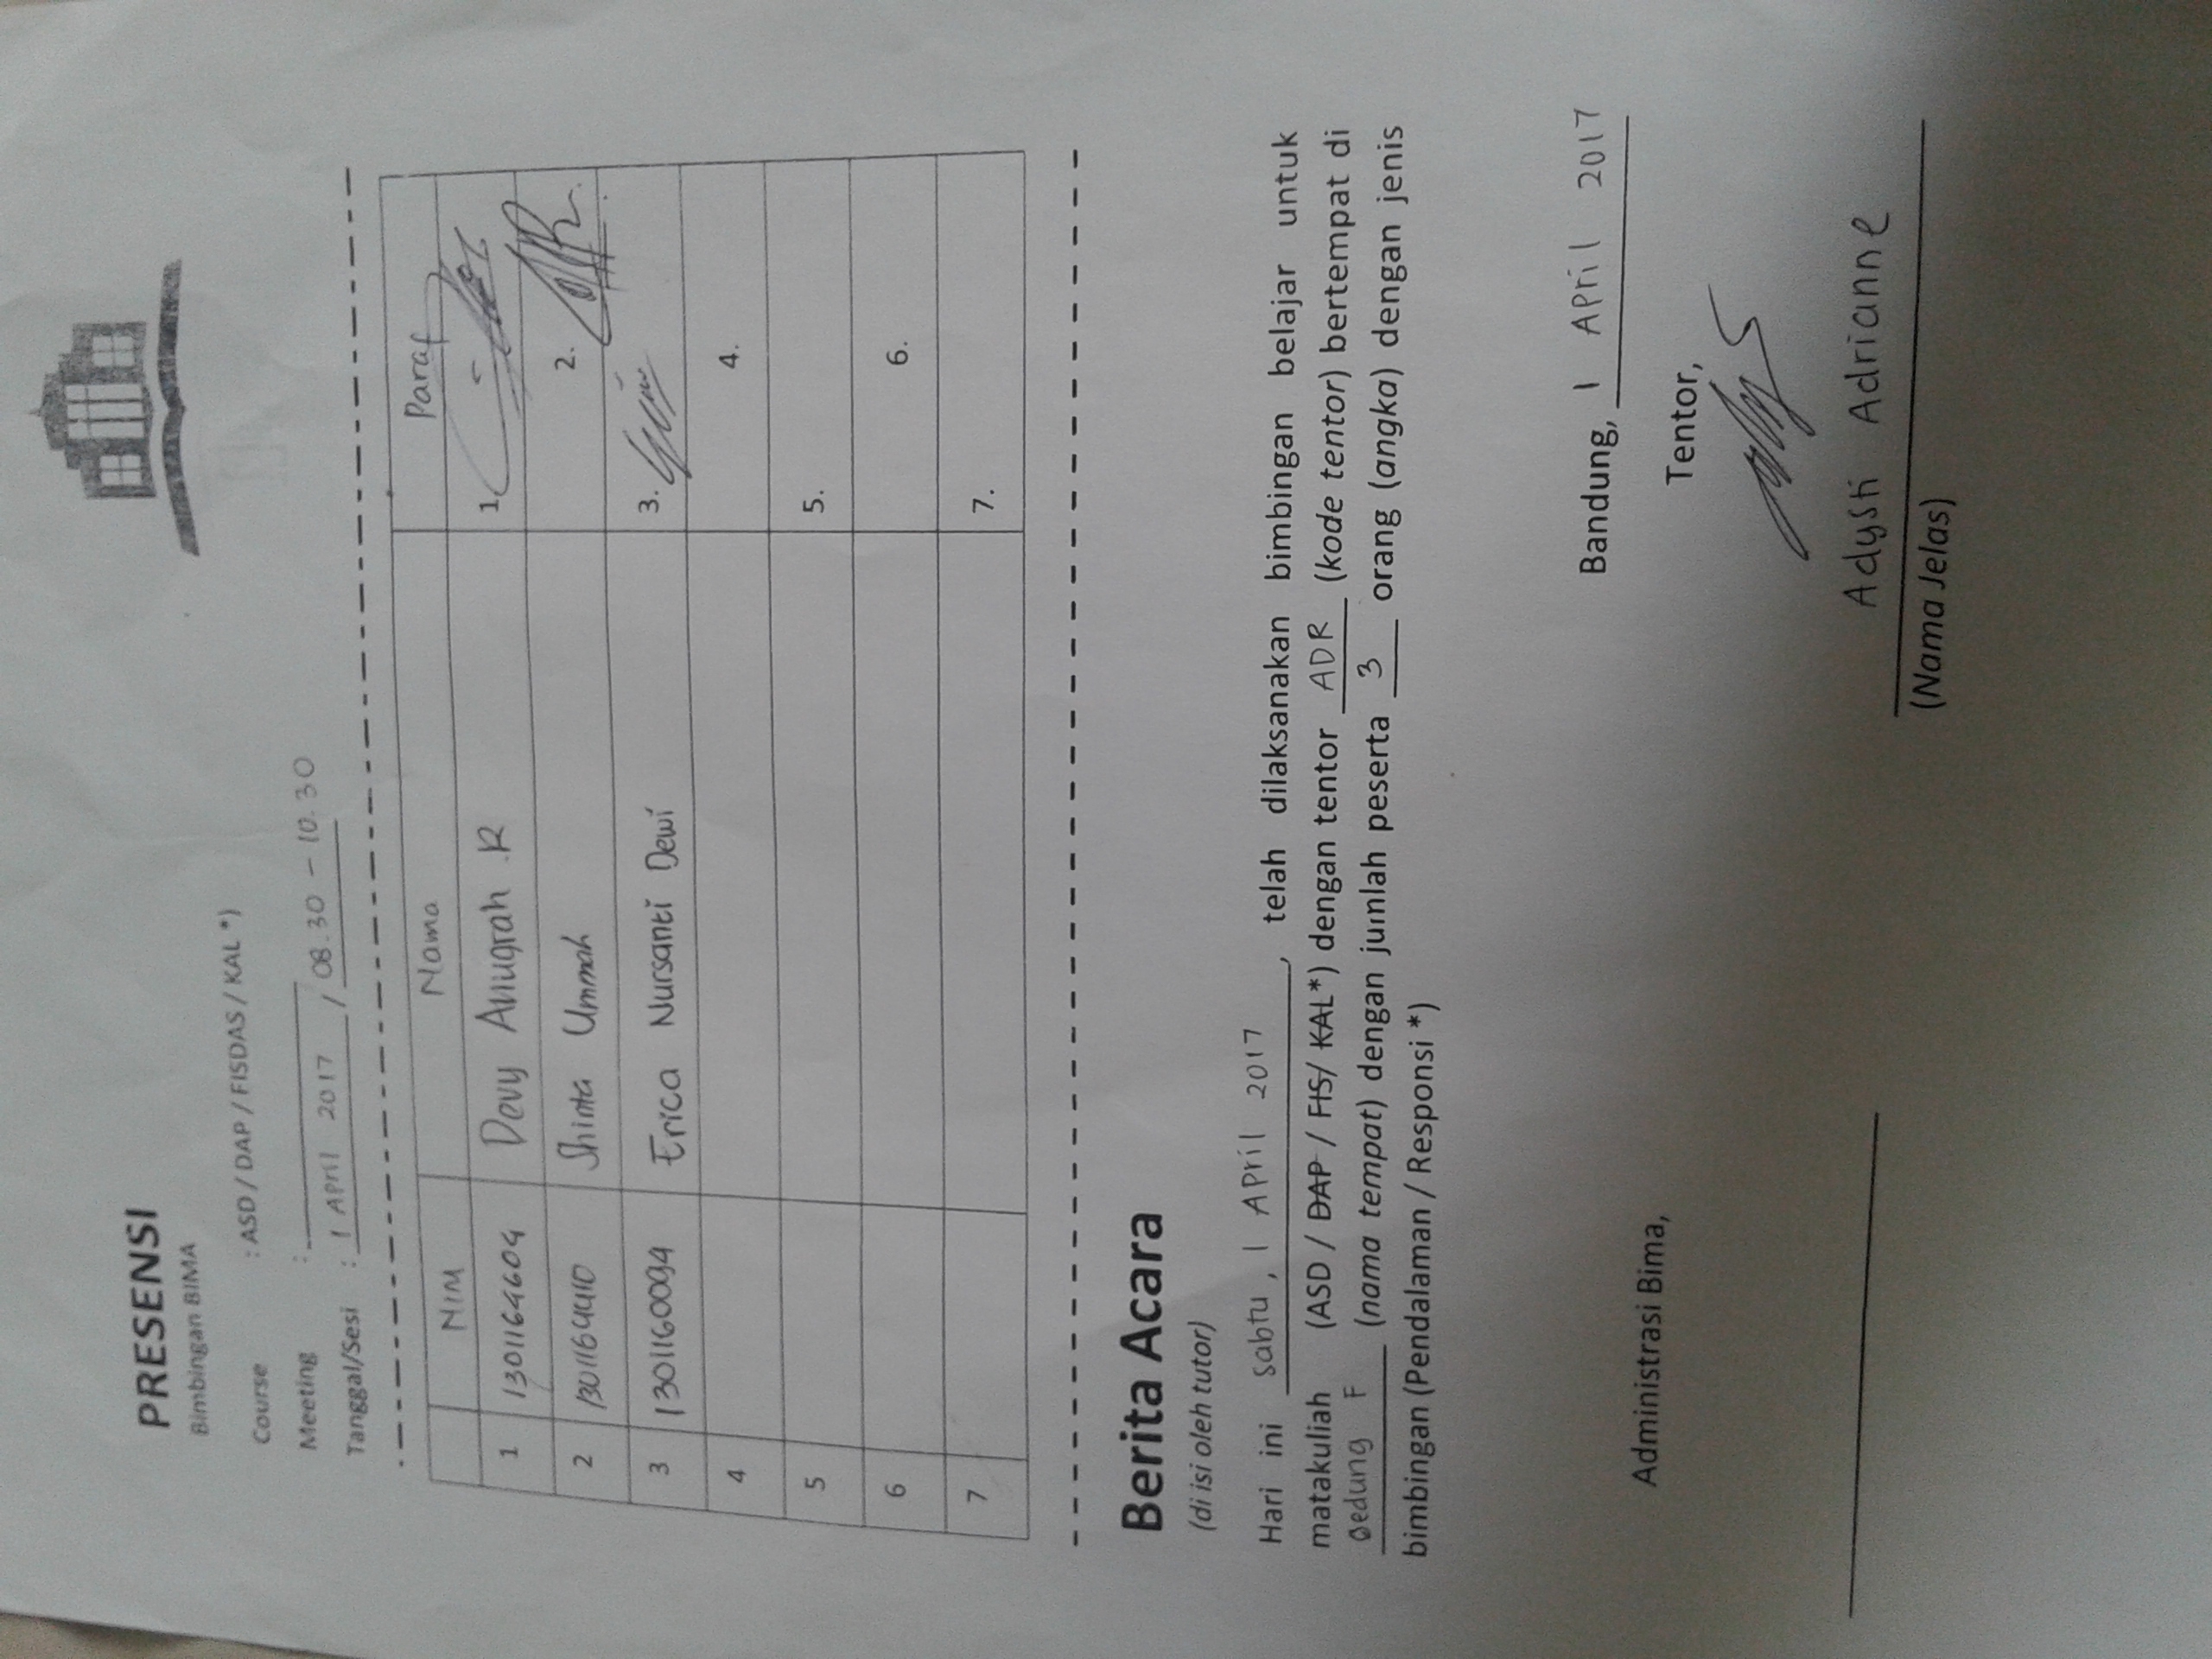 PRESENSI
Bimbingan BIMA
Course : ASD / DAP / FISDAS / KAL *)
Meeting :
Tanggal/Sesi : 1 April 2017 / 08.30 - 10.30
NIM Nama Paraf
1 1301164604 Devy Anugrah .R 1.
2 1301164410 Shinta Ummah 2.
3 1301160094 Erica Nursanti Dewi 3.
4 4.
5 5.
6 6.
7 7.
Berita Acara
(di isi oleh tutor)
Hari ini sabtu, 1 April 2017, telah dilaksanakan bimbingan belajar untuk
matakuliah (ASD / DAP / FIS/ KAL*) dengan tentor ADR (kode tentor) bertempat di
Gedung F (nama tempat) dengan jumlah peserta 3 orang (angka) dengan jenis
bimbingan (Pendalaman / Responsi *)
Bandung, 1 April 2017
Administrasi Bima,
Tentor,
Adysti Adrianne
(Nama Jelas)